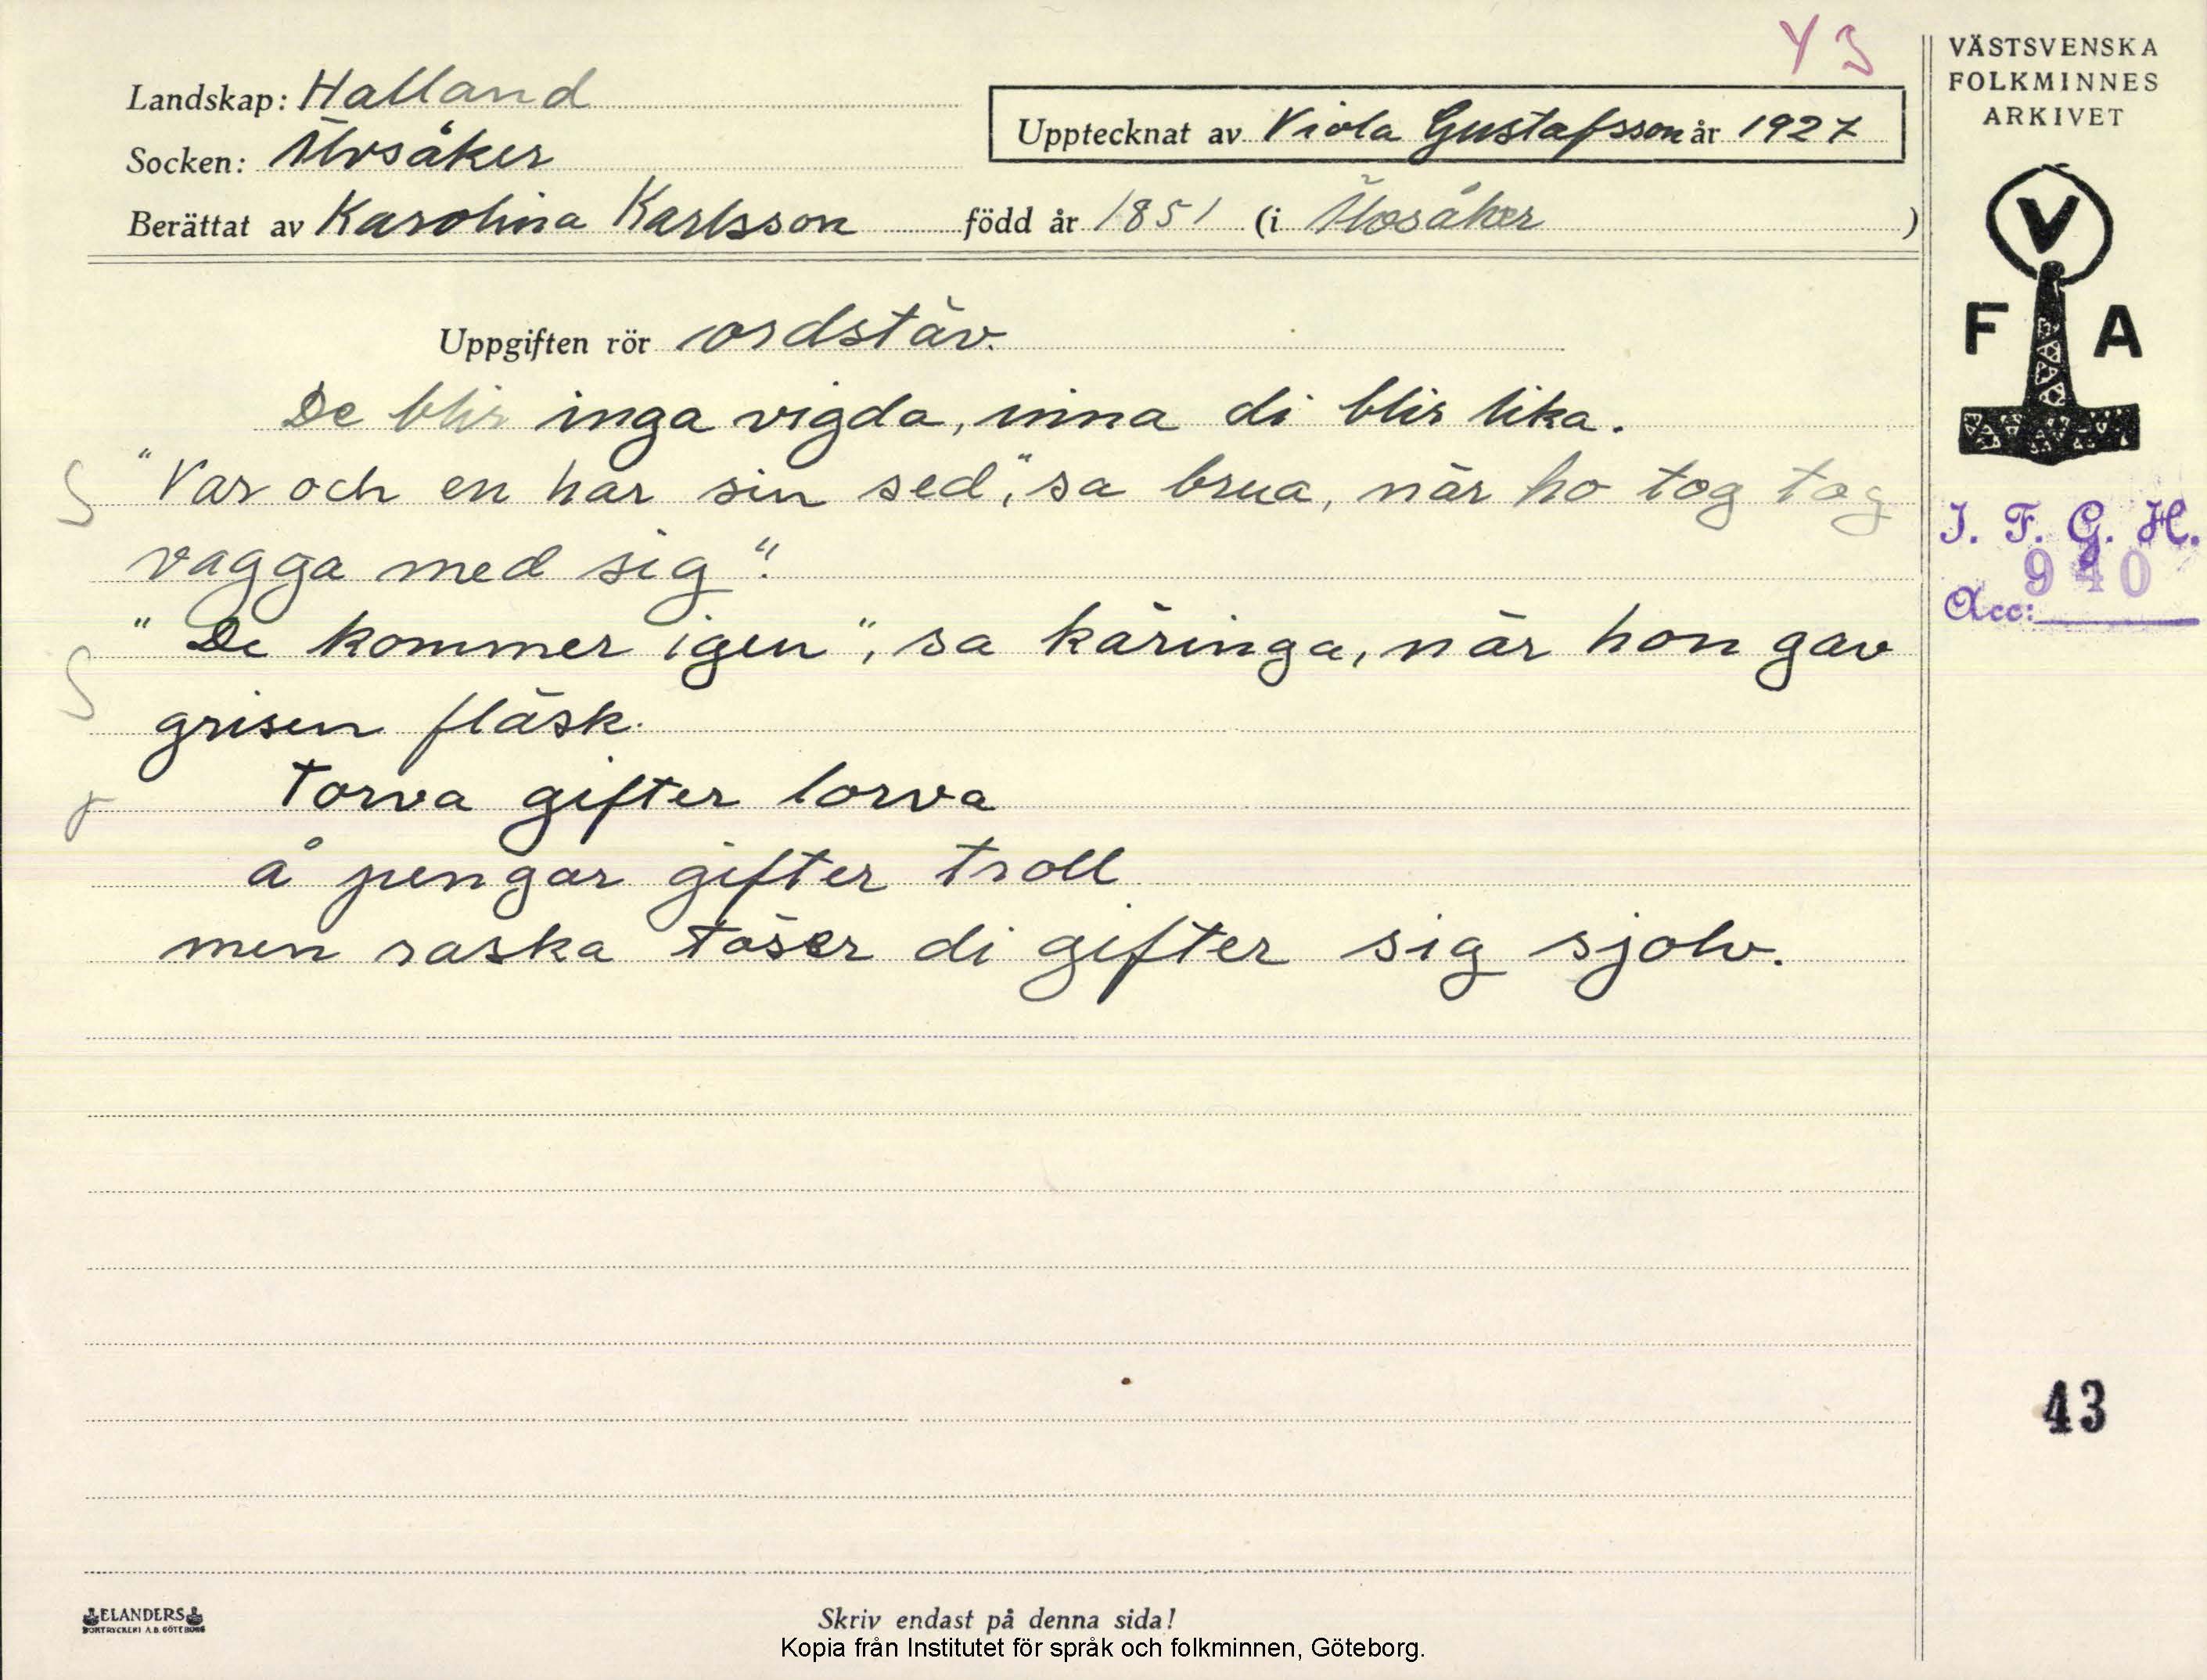 Y S
VÄSTSVENSKA
FOLKMINNES
ARKIVET
Landskap: Halland
Upptecknat av Viola Gustafsson år 1927
Socken: Älvsåker
Berättat av Karolina Karlsson född år 1851 (i Älvsåker )
V
F A
Uppgiften rör ordstäv.
De blir inga vigda, inna di blir lika.
S "Var och en har sin sed", sa brua, när ho tog tag
vagga med sig".
S "De kommer igen", sa käringa, när hon gav
grisen fläsk.
r Torva gifter lorva
å pengar gifter troll
men raska töser di gifter sig sjolv.
I. F. G. H.
940
Acc:
43
ELANDERS
BOKTRYCKERI A.B. GÖTEBORG
Skriv endast på denna sida!
Kopia från Institutet för språk och folkminnen, Göteborg.